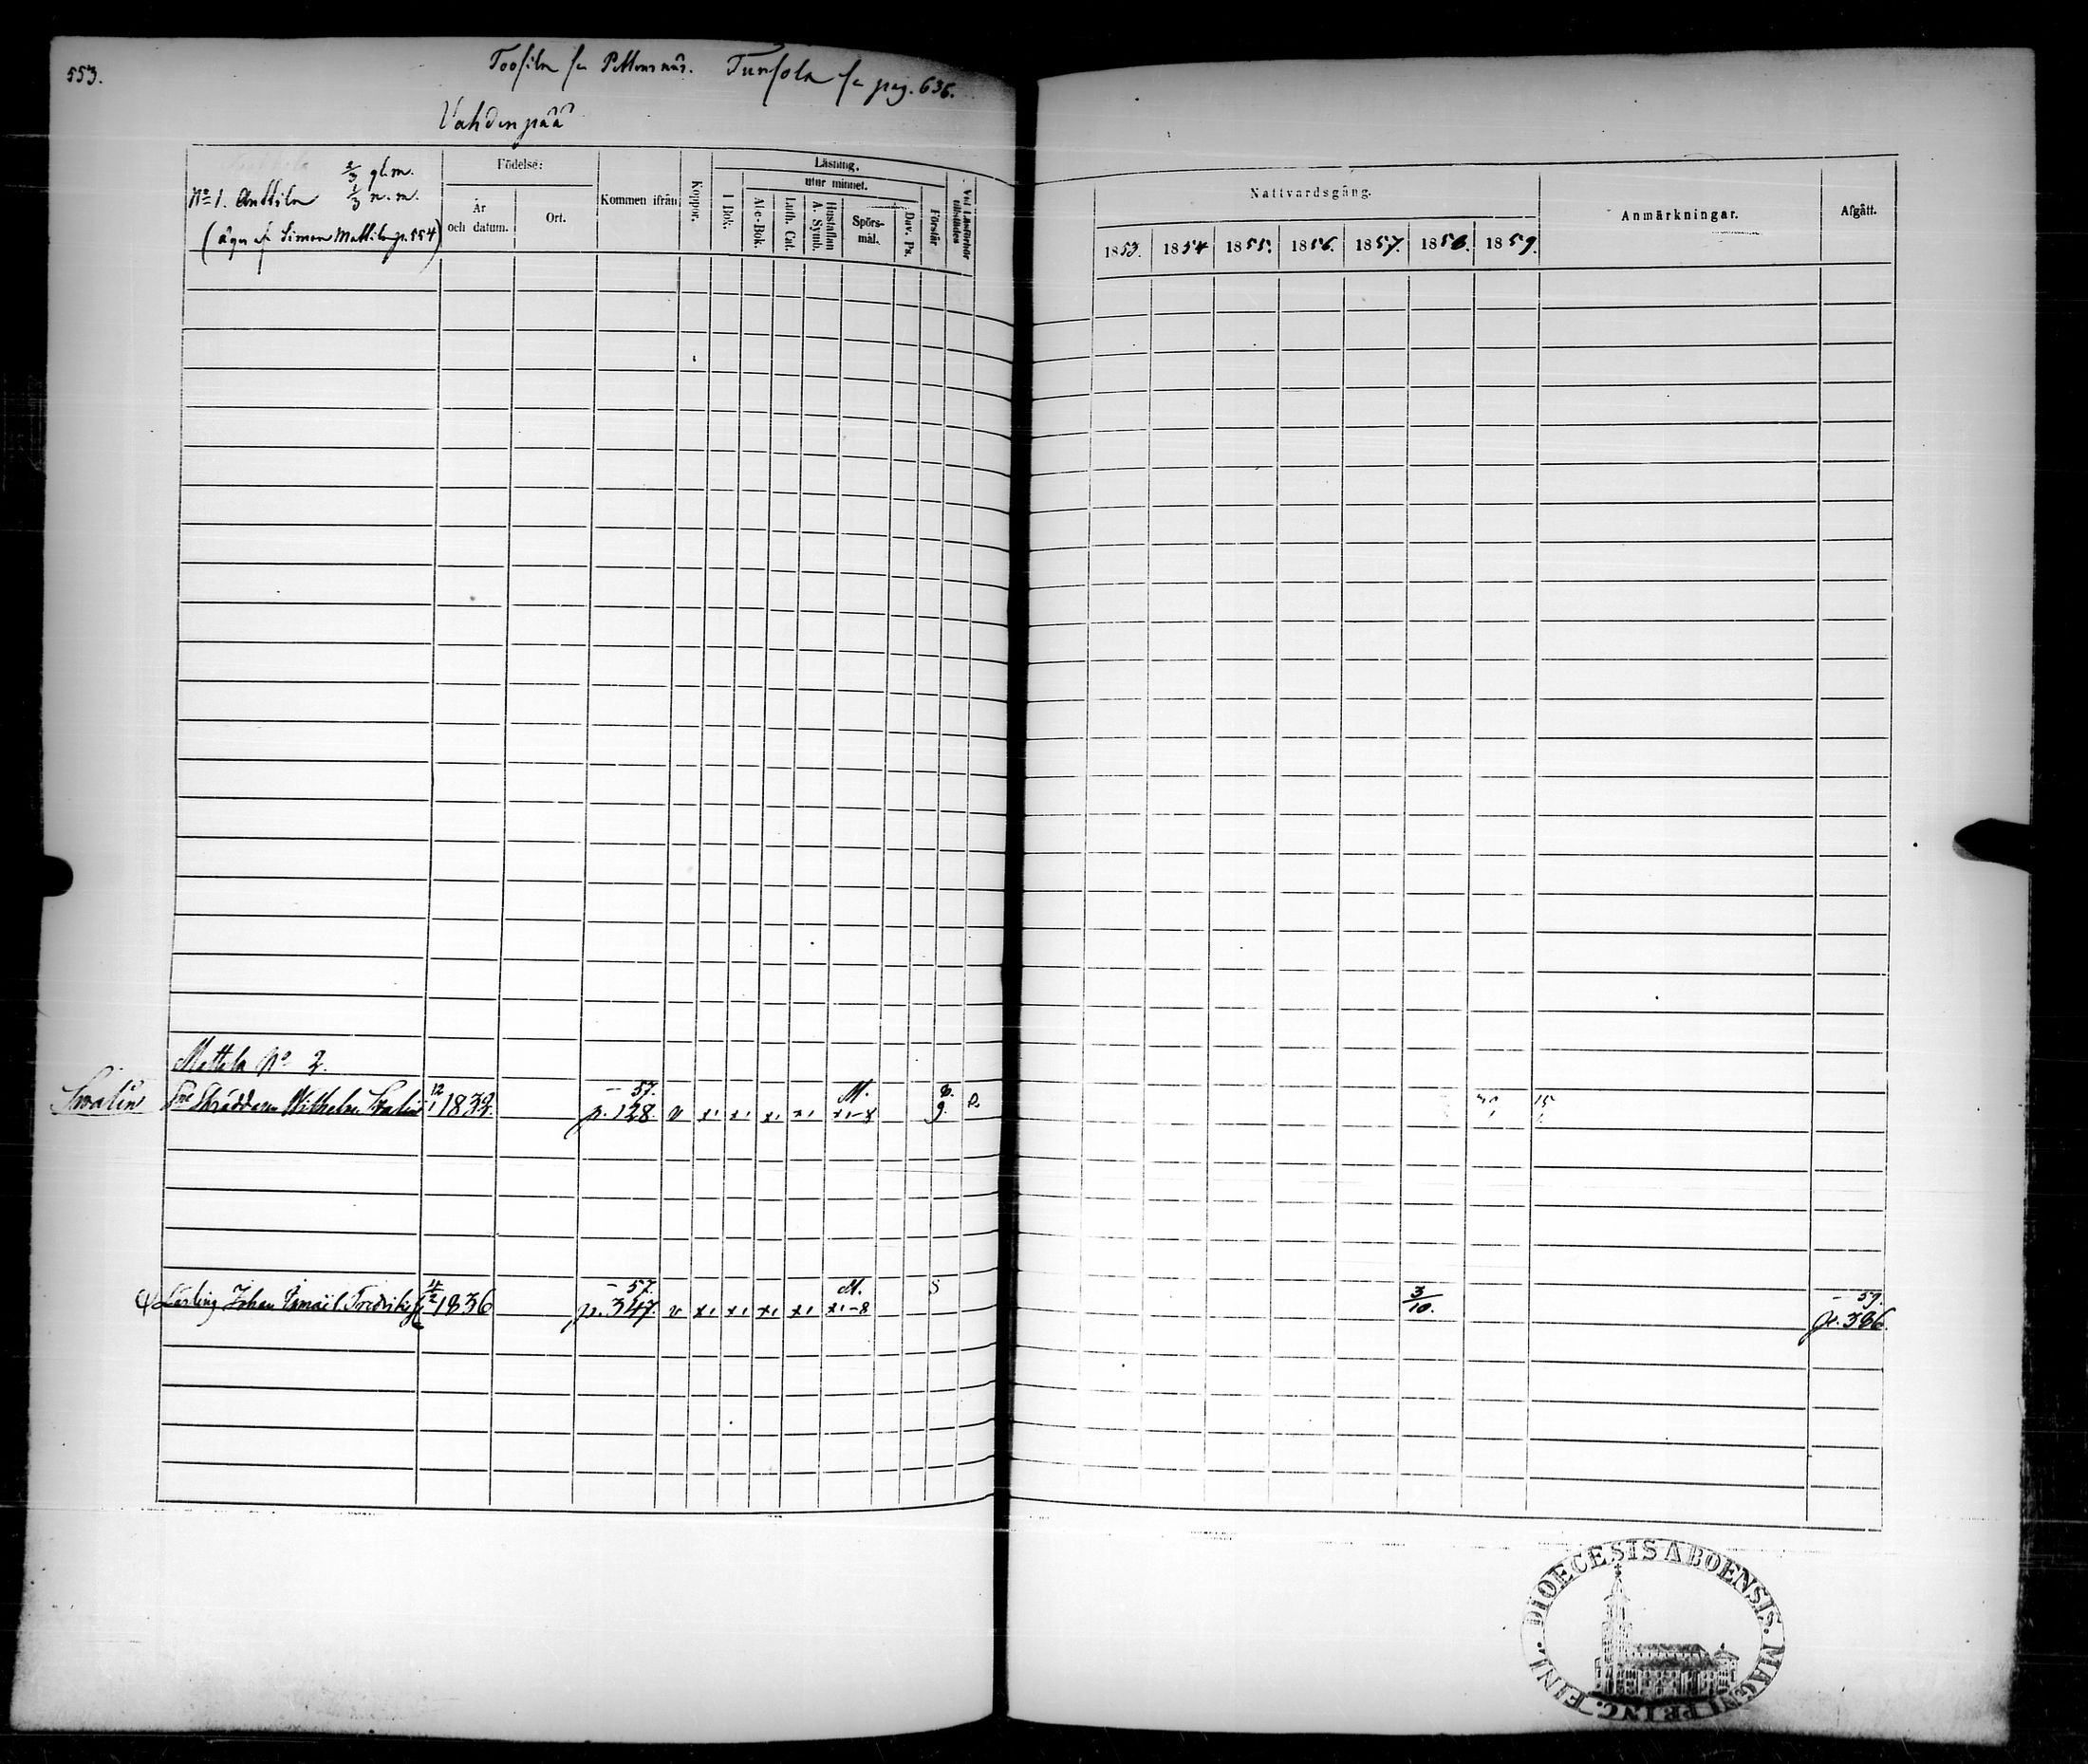 553.
Toosila se Pettersnäs. Tursola se pag. 636.
Vahdenpää
No 1. Anttila 2/3 gl. m.
1/3 n. m.
(äges af Simon Mattila p. 554)
Födelse:
År och datum.
Ort.
Kommen ifrån
Koppor.
Läsning,
utur minnet.
I Bok.
Abc-Bok.
Luth. Cat.
Hustaflan A. Symb.
Spörs-mål.
Dav. Ps.
Förstår
Vid Läsförhör tillstädes
Nattvardsgång.
1853. 1854 1855. 1856. 1857. 1858. 1859.
Anmärkningar.
Afgått.
Mattila No 2.
Svalin Skräddaren Wilhelm Svalin 12/1 1832. - 57. p. 128. v x1 x1 x1 x1 M. x1-8 g.
Lärling Johan Ismaël Fredriks 4/2 1836 - 57. p. 347. v x1 x1 x1 x1 M. x1-8 S 3/10. - 59. p. 386.
DIOECESIS ABOENSIS. MAGNI PRINC. FINL.